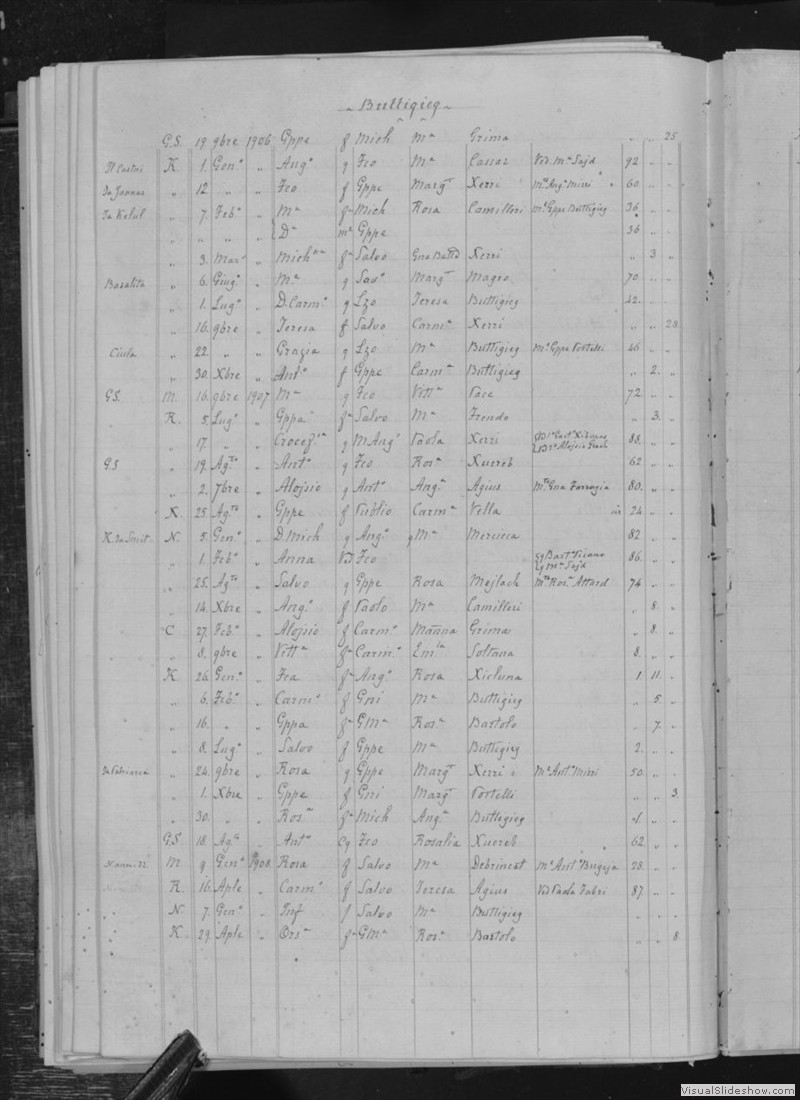 Buttigieg
G.S. 19. 9bre 1906 Gppe f Mich Ma Grima „ „ 25
Il Castai K. 1. Geno „ Ango q Fco Ma Cassar Vid. Ma Sajd 92 „ „
Ta Joannes „ 12 „ „ Fco f Gppe Margta Xerri Mo Anga Mizzi 60 „ „
Ta Kelul „ 7. Febo „ Ma fa Mich Rosa Camilleri Ma Gppe Buttigieg 36 „ „
„ „ „ „ Da ma Gppe 36 „ „
„ 3. Mar „ Michna fa Salvo Gna Batta Xerri „ 3 „
Basalita „ 6. Giugo „ Ma q Savo Margta Magro 70 „ „
„ 1. Lugo „ D. Carmo q Lzo Teresa Buttigieg 42. „ „
„ 16. 9bre „ Teresa f Salvo Carma Xerri „ „ 28
Ciula „ 22. „ „ Grazia q Lzo Ma Buttigieg Ma Gppe Portelli 46 „ „
„ 30. Xbre „ Anto f Gppe Carma Buttigieg „ 2. „
G.S. M. 16. 9bre 1907 Ma q Fco Vitta Pace 72. „ „
K. 5. Lugo „ Gppa fa Salvo Ma Frendo „ 3. „
„ 17. „ „ q M. Ango Paola Xerri 88. „ „
G.S „ 19. Agto „ Anto q Fco Rosa Xuereb 62 „ „
„ 2. 7bre „ Aloisio q Anto Anga Agius Mo Gna Farrugia 80. „ „
X. 25. Agto „ Gppe f Publio Carma Vella 24 „ „
N. 5. Geno „ D. Mich q Ango q Ma Mercieca 82. „ „
„ 1. Febo „ Anna Vd Fco 86. „ „
„ 25. Agto „ Salvo q Gppe Rosa Mejlach Mo Rosa Attard 74 „ „
„ 14. Xbre „ Ango f Paolo Ma Camilleri „ 8. „
C 27. Febo „ Aloisio f Carmo Manna Grima „ 8. „
„ 8. 9bre „ Vitta fa Carmo Emla Soltana 8. „ „
K. 26. Geno „ Fca fa Ango Rosa Xicluna 1. 11. „
„ 6. Febo „ Carmo f Gni Ma Buttigieg „ 5. „
„ 16. „ „ Gppa fa GMa Rosa Bartolo „ 7. „
„ 8. Lugo „ Salvo f Gppe Ma Buttigieg 2. „ „
Ta Patriarca „ 24. 9bre „ Rosa q Gppe Margta Xerri Ma Anto Mizzi 50. „ „
„ 1. Xbre „ Gppe f Gni Margta Portelli „ „ 3.
„ 30. „ „ Rosa fa Mich Anga Buttigieg 1 „ „
G.S. 18. Agto „ Anto q Fco Rosalia Xuereb 62. „ „
M. 9 Geno 1908. Rosa f Salvo Ma Debrincat Ma Anto Bugeja 28. „ „
K. 16. Aple „ Carmo f Salvo Teresa Agius Vid Paola Fabri 87. „ „
N. 7. Geno „ Inf f Salvo Ma Buttigieg „ „ „
K. 29. Aple „ Orsa fa GMa Rosa Bartolo „ „ 8.
VisualSlideshow.com